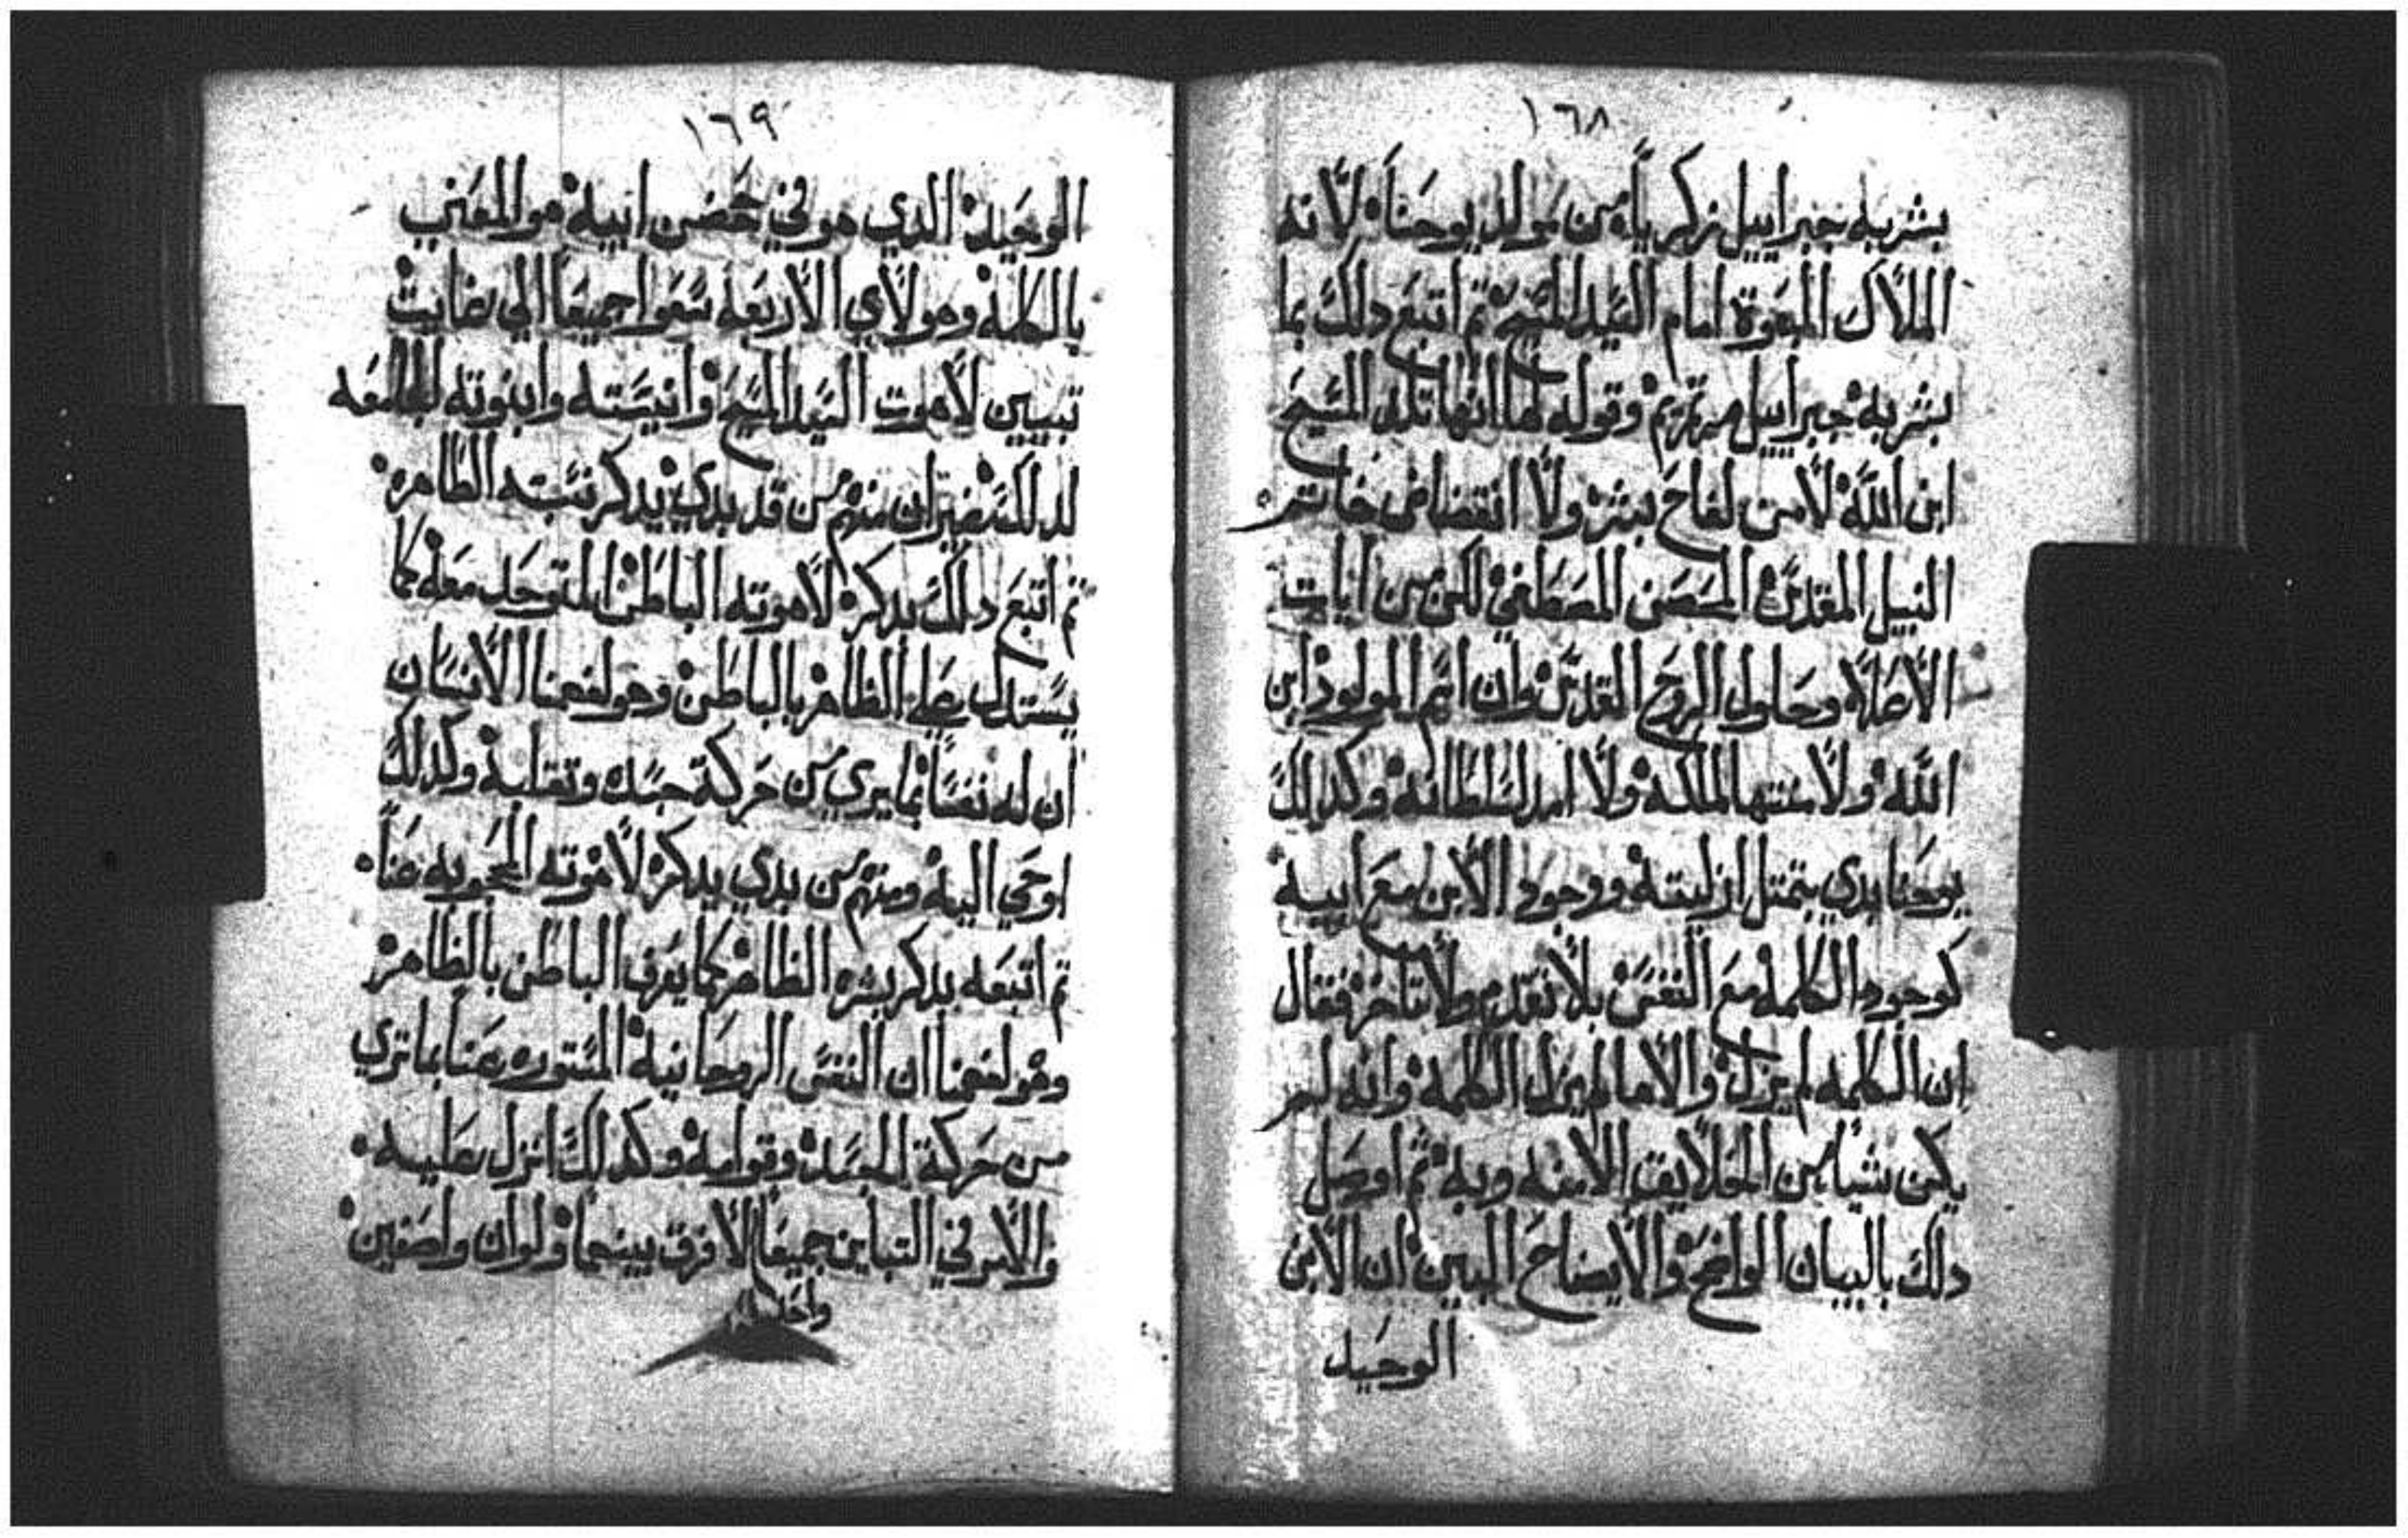 ١٦٨
بشر به جبراييل زكريا من مولد يوحنا لانه
الملاك المبعوت امام السيد المسيح تم اتبع دلك بما
بشر به جبراييل مرتمريم وقوله لها انها تلد المسيح
ابن الله لا من لقاح بشر ولا انقضاض خاتم
النبيل المقدس المحصن المصطفي لكن من ايات
الاصلاه وحلول الروح القدس وان اسم المولود ابن
الله ولا منتها لملكه ولا امد لسلطانه وكدالك
يوحنا بدي بتمتل ازليته ووجود الابن مع ابيه
كوجود الكلمه مع النفس بلا تقدم ولا تاخر فقال
ان الكلمه لم يزل والاما لم يزل الكلمه وانه لم
يكن شيا من الخلايق الا منه وبه تم اوصل
دلك بالبيان الواضح والايضاح المبين ان الابن
الوحيد
١٦٩
الوحيد الدي هو في حضن ابيه هو المعني
بالكلمه وهولاي الاربعه سعوا جميعا الي غايت
تبيين لاهوت السيد المسيح وانيسته وابنوته الجامعه
لدلك غير ان منهم من قد بدي يدكر نسبته الظاهره
تم اتبع دلك بدكر لاهوته الباطن المتوحد معه كما
يستدل علي الظاهر بالباطن وهو لفهمنا الانسان
ان له نفسا بما يري من حركة جسده وتقلبه وكدلك
اوحي اليه ومنهم من بدي يدكر لاهوته المحجوبه عنا
تم اتبعه بدكر بشره الظاهر كما يعرف الباطن بالظاهر
وهو لفهمنا ان النفس الروحانيه المستوره عنا بما تري
من حركة الجسد وقوامه وكدلك انزل عليه
والامر في التباين جميعا لا فرق بينهما ولو ان واصفين
واحد